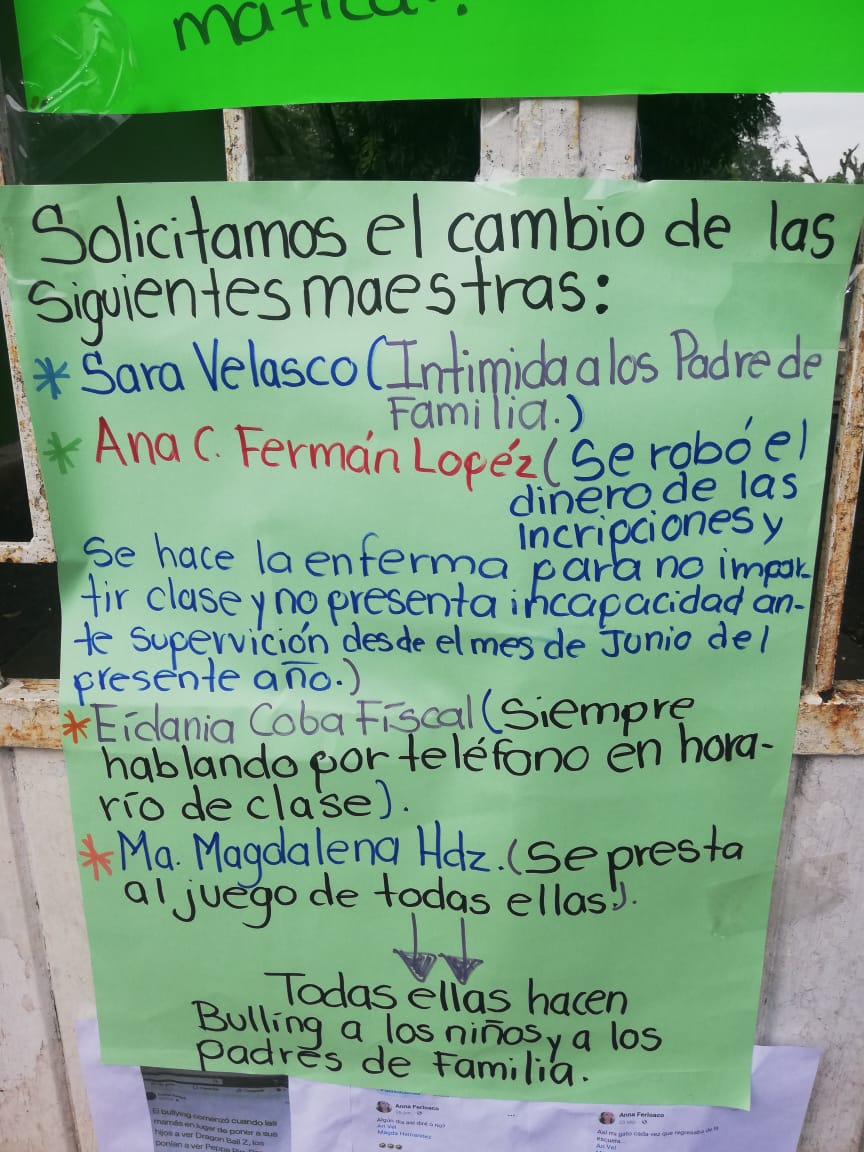 mática".
Solicitamos el cambio de las
Siguientes maestras:
* Sara Velasco (Intimida a los Padre de
Familia.)
* Ana C. Fermán Lopéz (Se robó el
dinero de las
Incripciones y
Se hace la enferma para no impar-
tir clase y no presenta incapacidad an-
te supervición desde el mes de Junio del
presente año.)
* Eidania Coba Fiscal (Siempre
hablando por teléfono en hora-
rio de clase).
* Ma. Magdalena Hdz. (Se presta
al juego de todas ellas).
Todas ellas hacen
Bulling a los niños y a los
padres de Familia.
El bullying comenzó cuando las
mamás en lugar de poner a sus
hijos a ver Dragon Ball Z, los
ponían a ver Peppa
Anna Ferlosco
Algún día así diré o no?
An Vel
Magda Hernandez
Anna Ferlosco
Así mi gato cada vez que regresaba de la
escuela...
An Vel